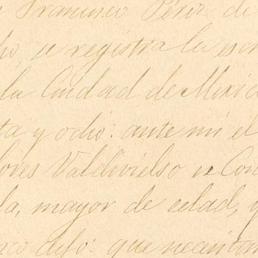 Francisco Pérez de
ho, se registra la escri
la Ciudad de Méxic
ta y ocho: ante mi el
ores Valdivielso vecin
la, mayor de edad, y
dijo: que necesitan